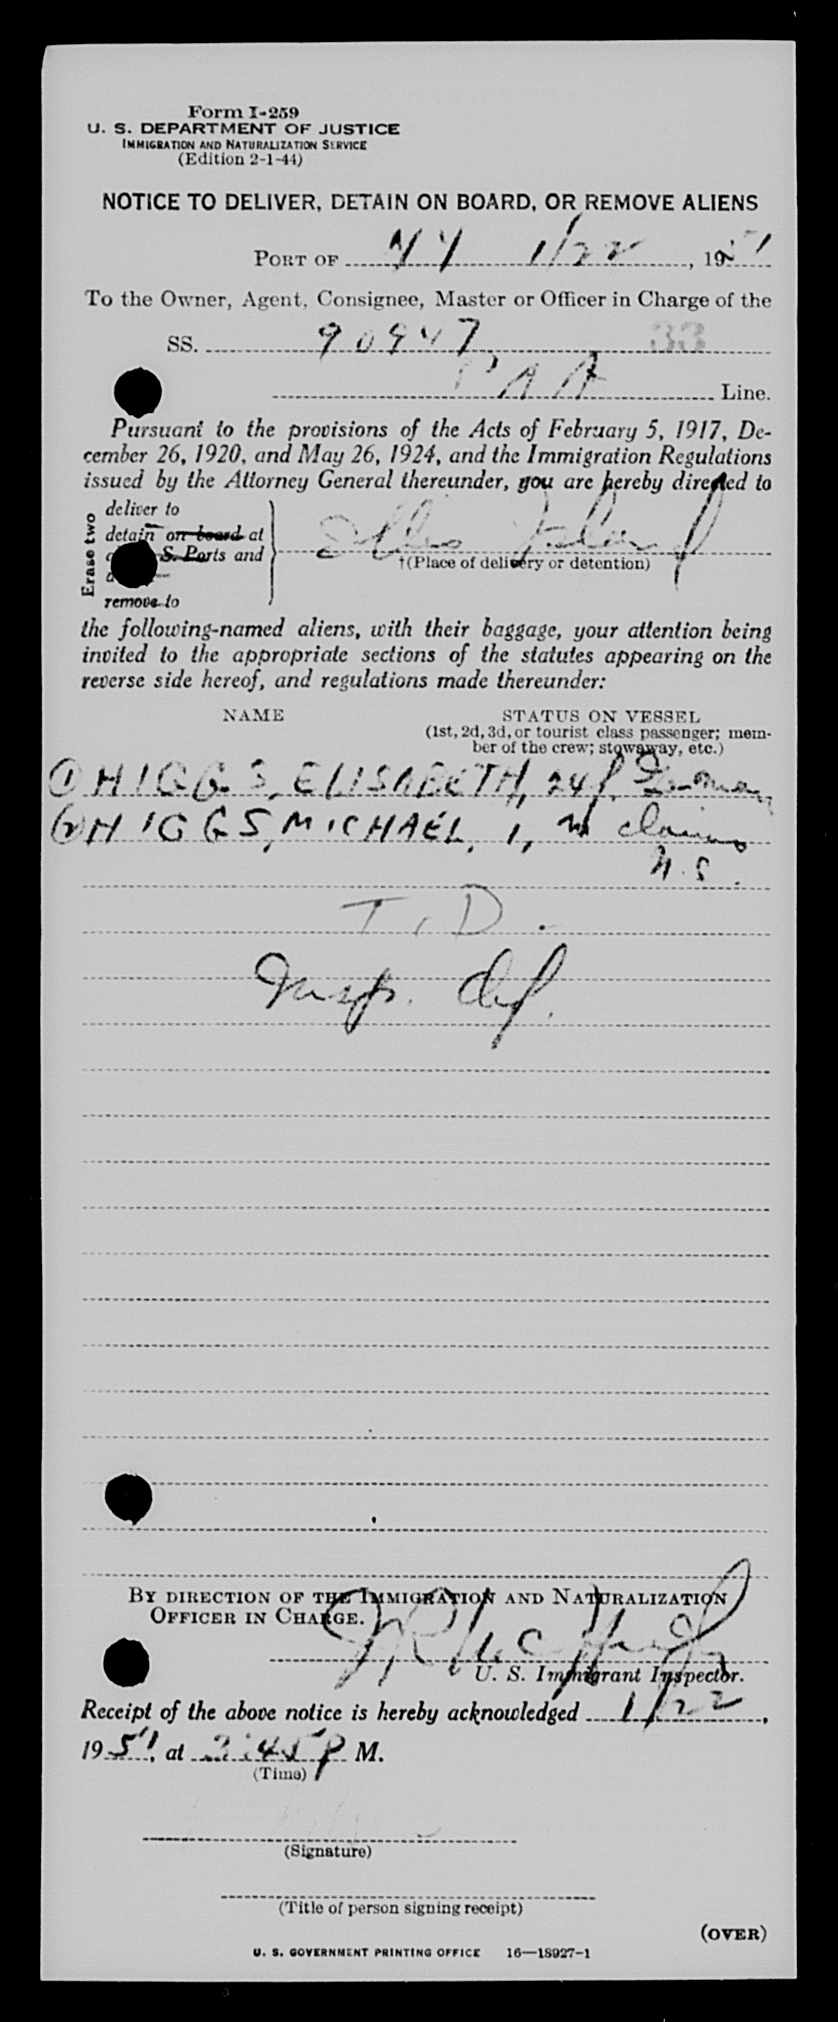 Form I-259
U. S. DEPARTMENT OF JUSTICE
IMMIGRATION AND NATURALIZATION SERVICE
(Edition 2-1-44)
NOTICE TO DELIVER, DETAIN ON BOARD, OR REMOVE ALIENS
PORT OF NY 1/22, 1951
To the Owner, Agent, Consignee, Master or Officer in Charge of the
SS. 90947 33
PAA Line.
Pursuant to the provisions of the Acts of February 5, 1917, De-
cember 26, 1920, and May 26, 1924, and the Immigration Regulations
issued by the Attorney General thereunder, you are hereby directed to
Erase two
deliver to
detain on board at
S. Ports and
remove to
Ellis Island
†(Place of delivery or detention)
the following-named aliens, with their baggage, your attention being
invited to the appropriate sections of the statutes appearing on the
reverse side hereof, and regulations made thereunder:
NAME STATUS ON VESSEL
(1st, 2d, 3d, or tourist class passenger; mem-
ber of the crew; stowaway, etc.)
(1) HIGGS, ELISABETH, 24 f, German
(2) HIGGS, MICHAEL, 1, m claims
U.S.
T.D.
Insp. def.
BY DIRECTION OF THE IMMIGRATION AND NATURALIZATION
OFFICER IN CHARGE.
U. S. Immigrant Inspector.
Receipt of the above notice is hereby acknowledged 1/22,
1951, at 3:45 P M.
(Time)
(Signature)
(Title of person signing receipt)
(OVER)
U. S. GOVERNMENT PRINTING OFFICE 16—18927-1